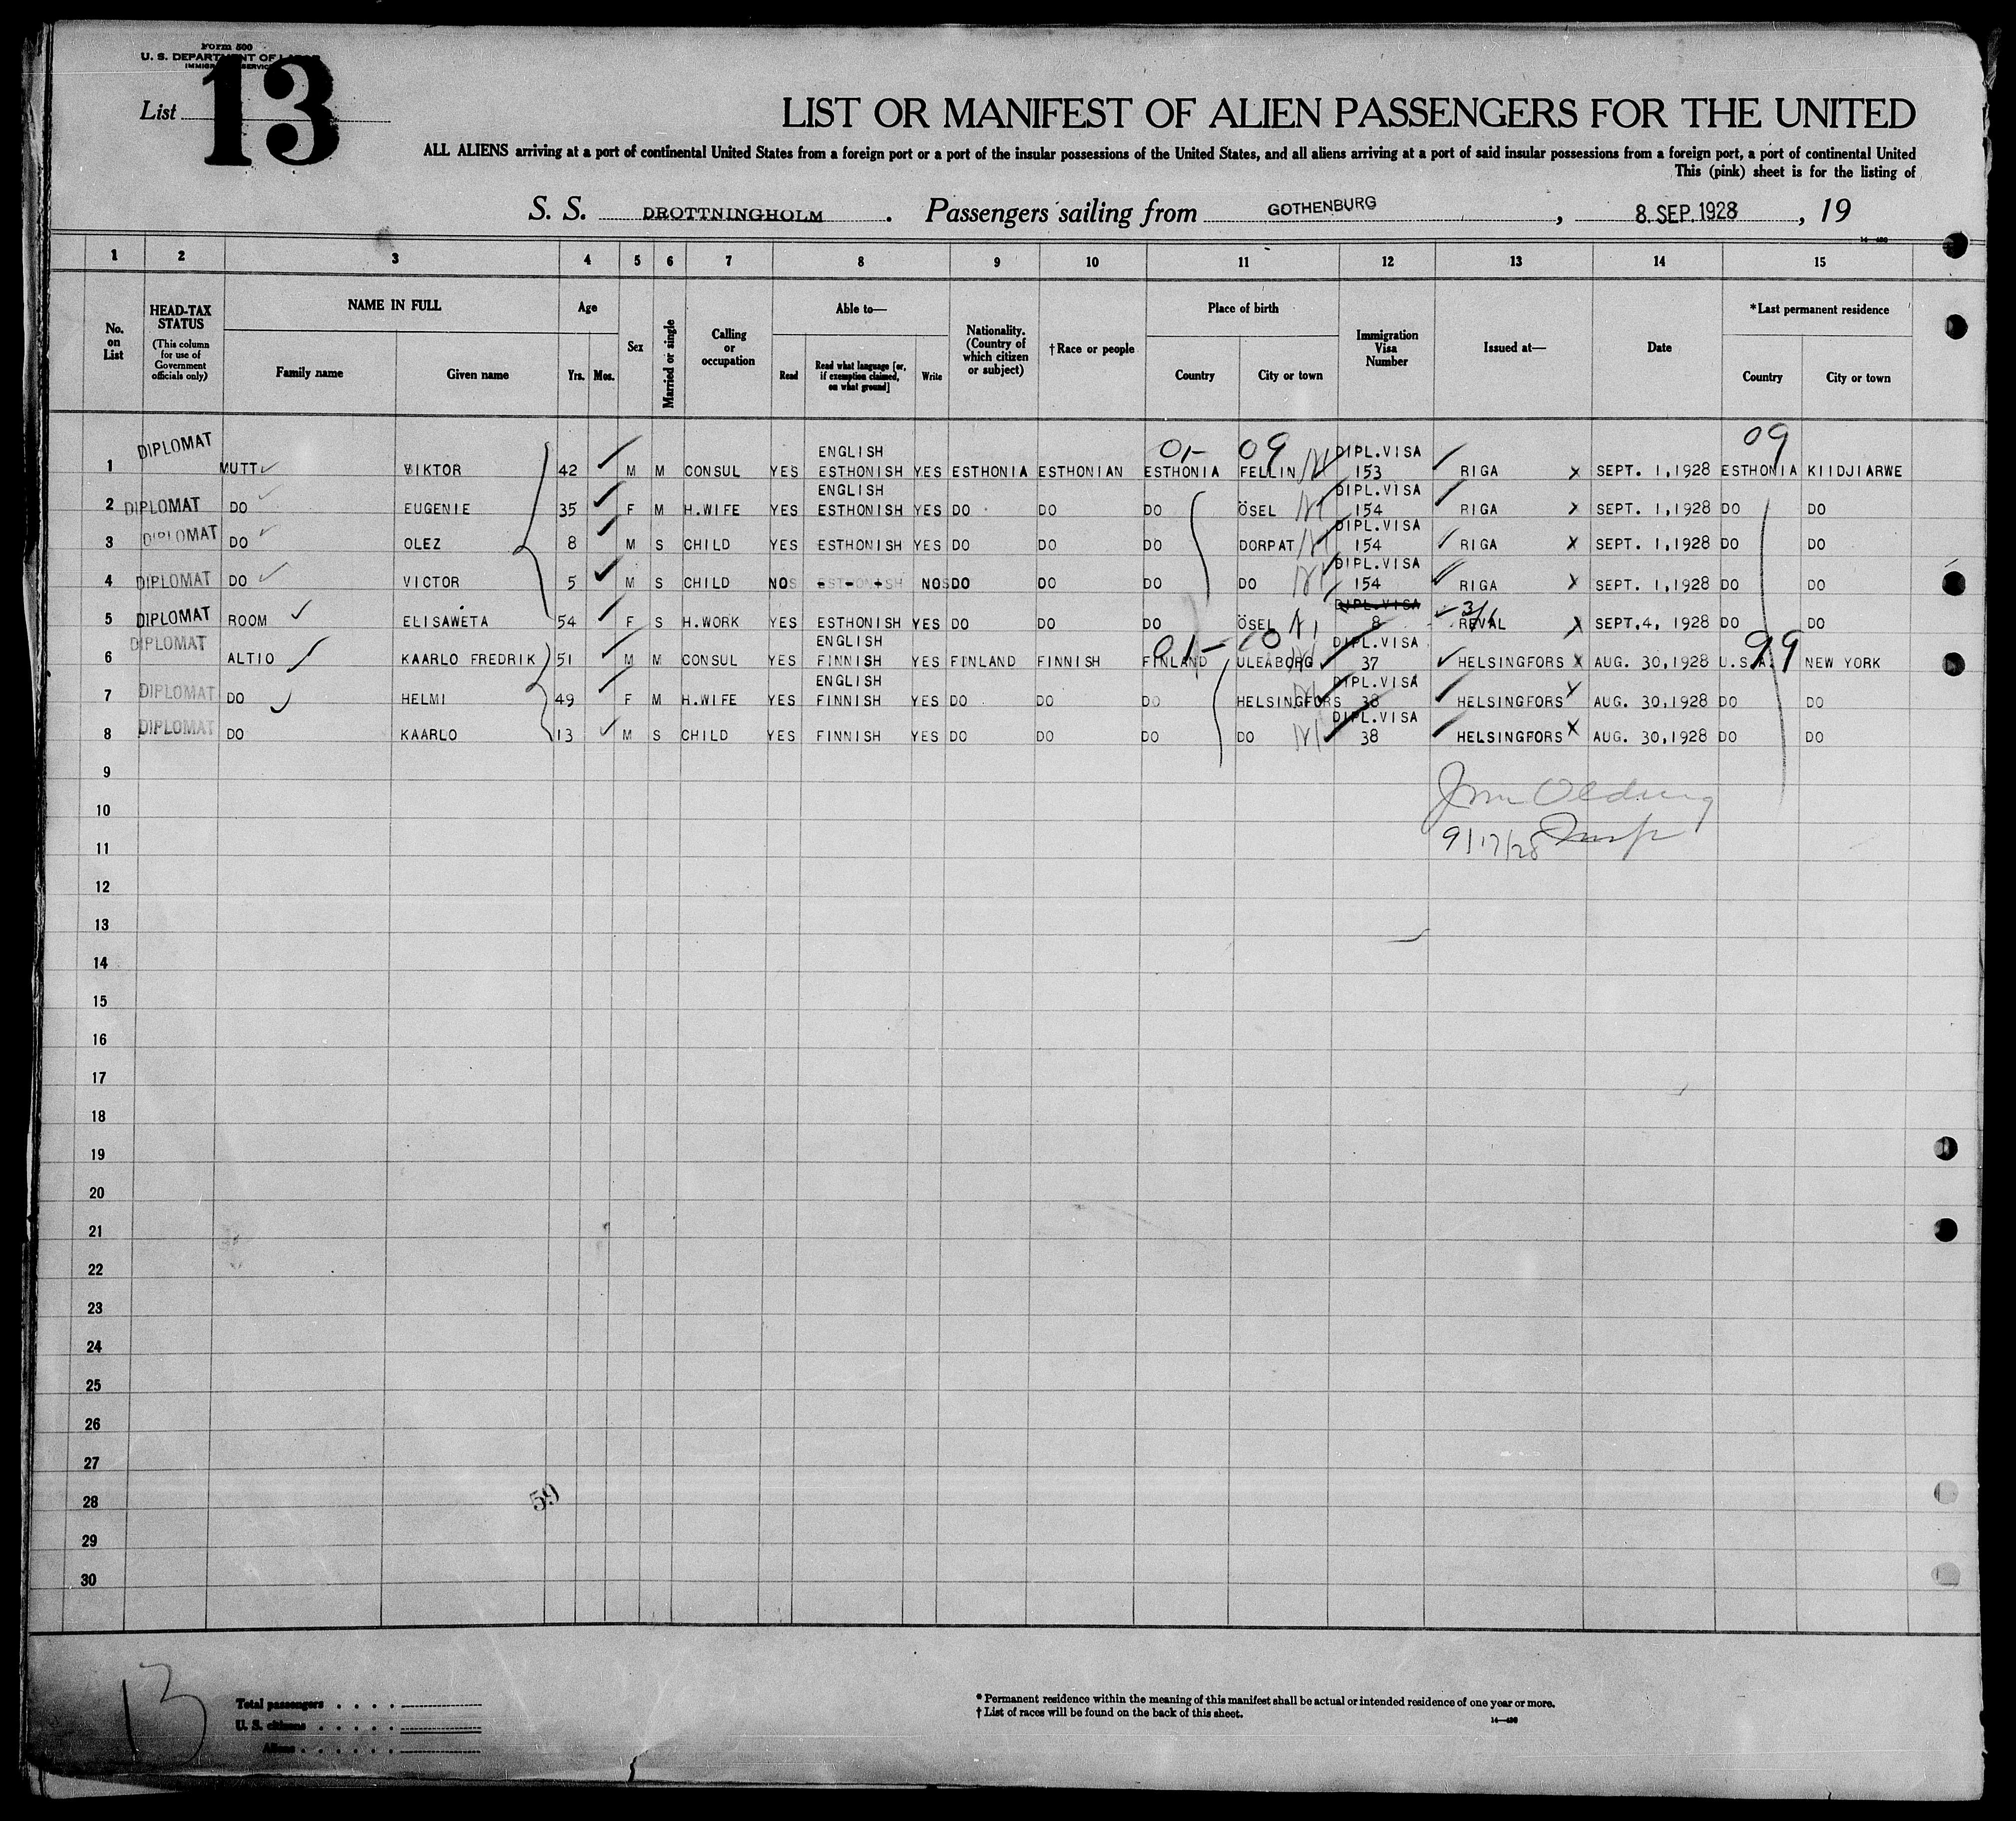 Form 500
U. S. DEPARTMENT OF LABOR
IMMIGRATION SERVICE
List 13
LIST OR MANIFEST OF ALIEN PASSENGERS FOR THE UNITED
ALL ALIENS arriving at a port of continental United States from a foreign port or a port of the insular possessions of the United States, and all aliens arriving at a port of said insular possessions from a foreign port, a port of continental United
This (pink) sheet is for the listing of
S. S. DROTTNINGHOLM . Passengers sailing from GOTHENBURG , 8. SEP. 1928 , 19
14—430
1 2 3 4 5 6 7 8 9 10 11 12 13 14 15
No. on List
HEAD-TAX STATUS (This column for use of Government officials only)
NAME IN FULL
Family name Given name
Age
Yrs. Mos.
Sex
Married or single
Calling or occupation
Able to—
Read
Read what language [or, if exemption claimed, on what ground]
Write
Nationality. (Country of which citizen or subject)
†Race or people
Place of birth
Country City or town
Immigration Visa Number
Issued at—
Date
*Last permanent residence
Country City or town
01- 09 09
1 DIPLOMAT MUTT VIKTOR 42 M M CONSUL YES ENGLISH ESTHONISH YES ESTHONIA ESTHONIAN ESTHONIA FELLIN DIPL.VISA 153 RIGA X SEPT. 1,1928 ESTHONIA KIIDJIARWE
2 DIPLOMAT DO EUGENIE 35 F M H.WIFE YES ENGLISH ESTHONISH YES DO DO DO ÖSEL DIPL.VISA 154 RIGA X SEPT. 1,1928 DO DO
3 DIPLOMAT DO OLEZ 8 M S CHILD YES ESTHONISH YES DO DO DO DORPAT DIPL.VISA 154 RIGA X SEPT. 1,1928 DO DO
4 DIPLOMAT DO VICTOR 5 M S CHILD NO ESTHONISH NO DO DO DO DO DIPL.VISA 154 RIGA X SEPT. 1,1928 DO DO
5 DIPLOMAT ROOM ELISAWETA 54 F S H.WORK YES ESTHONISH YES DO DO DO ÖSEL DIPL.VISA 8 3/1 REVAL X SEPT.4, 1928 DO DO
01- 10 99
6 DIPLOMAT ALTIO KAARLO FREDRIK 51 M M CONSUL YES ENGLISH FINNISH YES FINLAND FINNISH FINLAND ULEABORG DIPL.VISA 37 HELSINGFORS X AUG. 30,1928 U.S.A. NEW YORK
7 DIPLOMAT DO HELMI 49 F M H.WIFE YES ENGLISH FINNISH YES DO DO DO HELSINGFORS DIPL.VISA 38 HELSINGFORS X AUG. 30,1928 DO DO
8 DIPLOMAT DO KAARLO 13 M S CHILD YES FINNISH YES DO DO DO DO DIPL.VISA 38 HELSINGFORS X AUG. 30,1928 DO DO
9
10
11 9/17/28 Insp
12
13
14
15
16
17
18
19
20
21
22
23
24
25
26
27
28 59
29
30
13
Total passengers
U. S. citizens
Aliens
* Permanent residence within the meaning of this manifest shall be actual or intended residence of one year or more.
† List of races will be found on the back of this sheet.
14—430